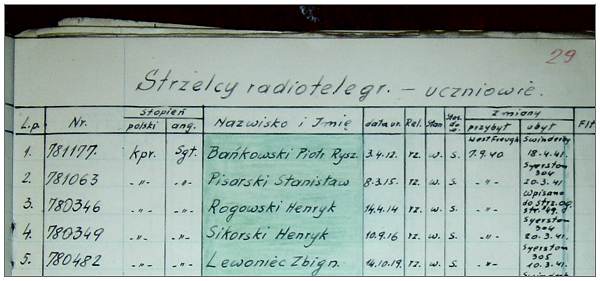 29
Strzelcy radiotelegr. – uczniowie.
L.p. Nr. Stopień polski ang. Nazwisko i Imię data ur. Rel. Stan Zmiany przybył ubył
1. 781177. kpr. Sgt. Bańkowski Piotr Rysz. 3.4.12. rz. w. s. West Freugh 7.9.40. Swinderby 18.4.41.
2. 781063 -"- -"- Pisarski Stanisław 8.3.15. rz. w. s. -"- Syerston 304 20.3.41.
3. 780346 -"- -"- Rogowski Henryk 14.4.14 rz. w. s. -"- Wpisano do strz. og. str. 49.
4. 780349 -"- -"- Sikorski Henryk 10.9.16 rz. w. s. -"- Syerston 304 20.3.41.
5. 780482 -"- -"- Lewoniec Zbign. 14.10.19. rz. w. s. -"- Syerston 305 10.3.41.